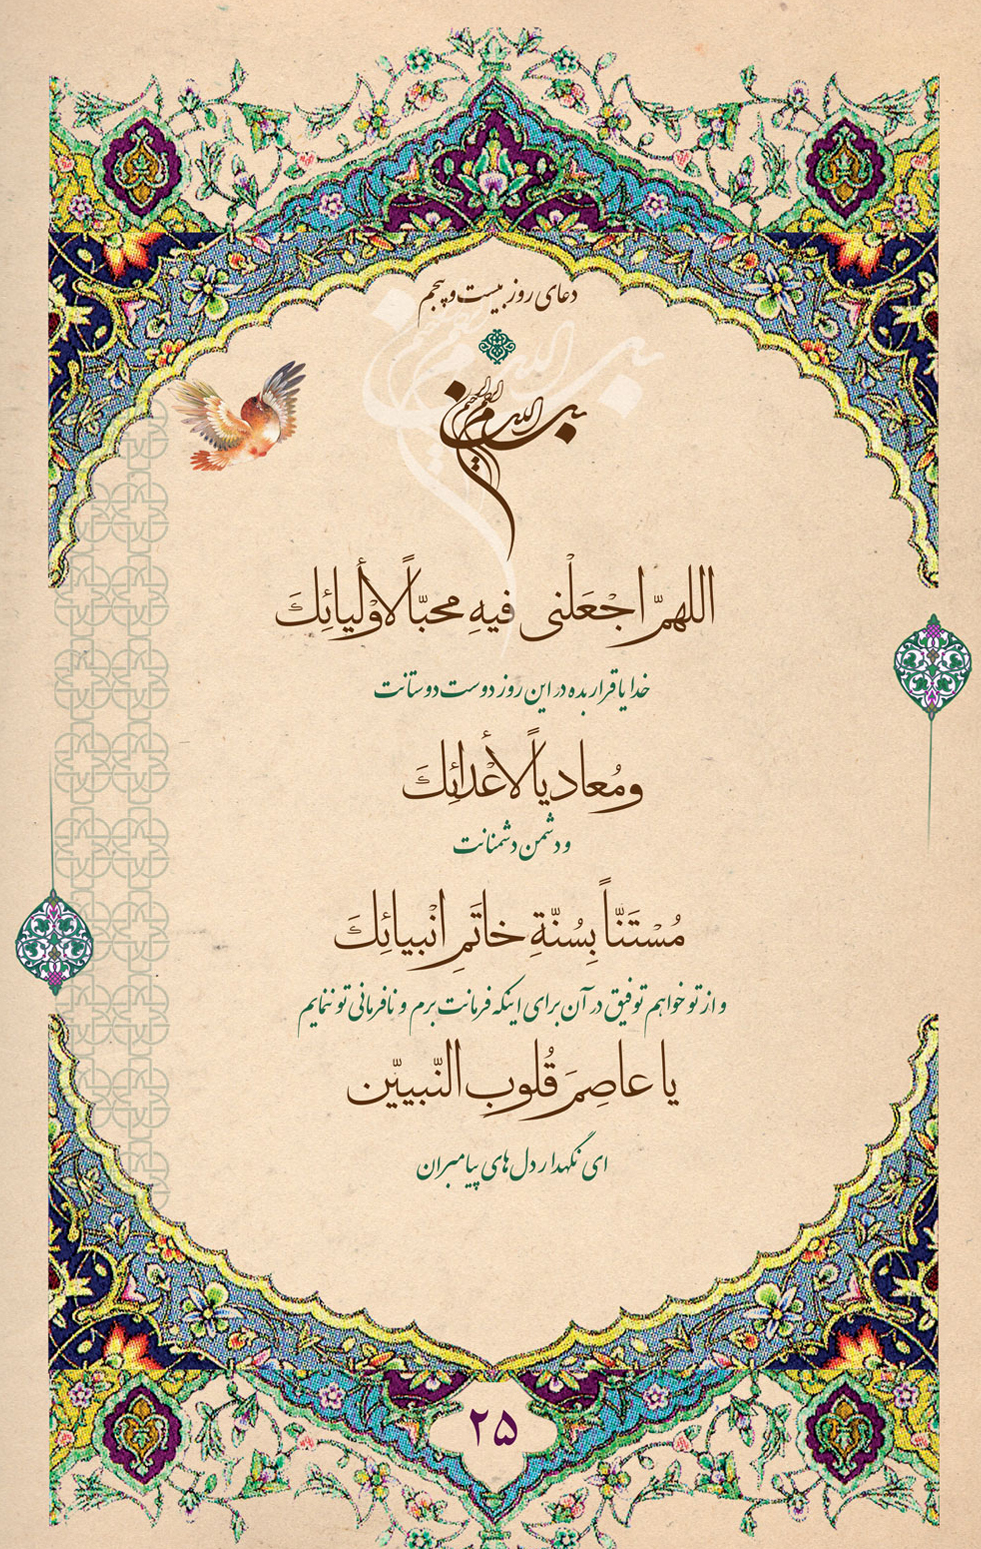 دعای روز بیست و پنجم
بسم الله الرحمن الرحیم
اللهمّ اجْعَلْنی فیهِ محبّاً لأوْلیائِكَ
خدایا قرار بده در این روز دوست دوستانت
ومُعادیاً لأعْدائِكَ
و دشمن دشمنانت
مُسْتَنّاً بِسُنّةِ خاتَمِ انْبیائِكَ
و از تو خواهم توفیق در آن برای اینکه فرمانت برم و نافرمانی تو ننمایم
یا عاصِمَ قُلوب النّبییّن
ای نگهدار دل های پیامبران
۲۵